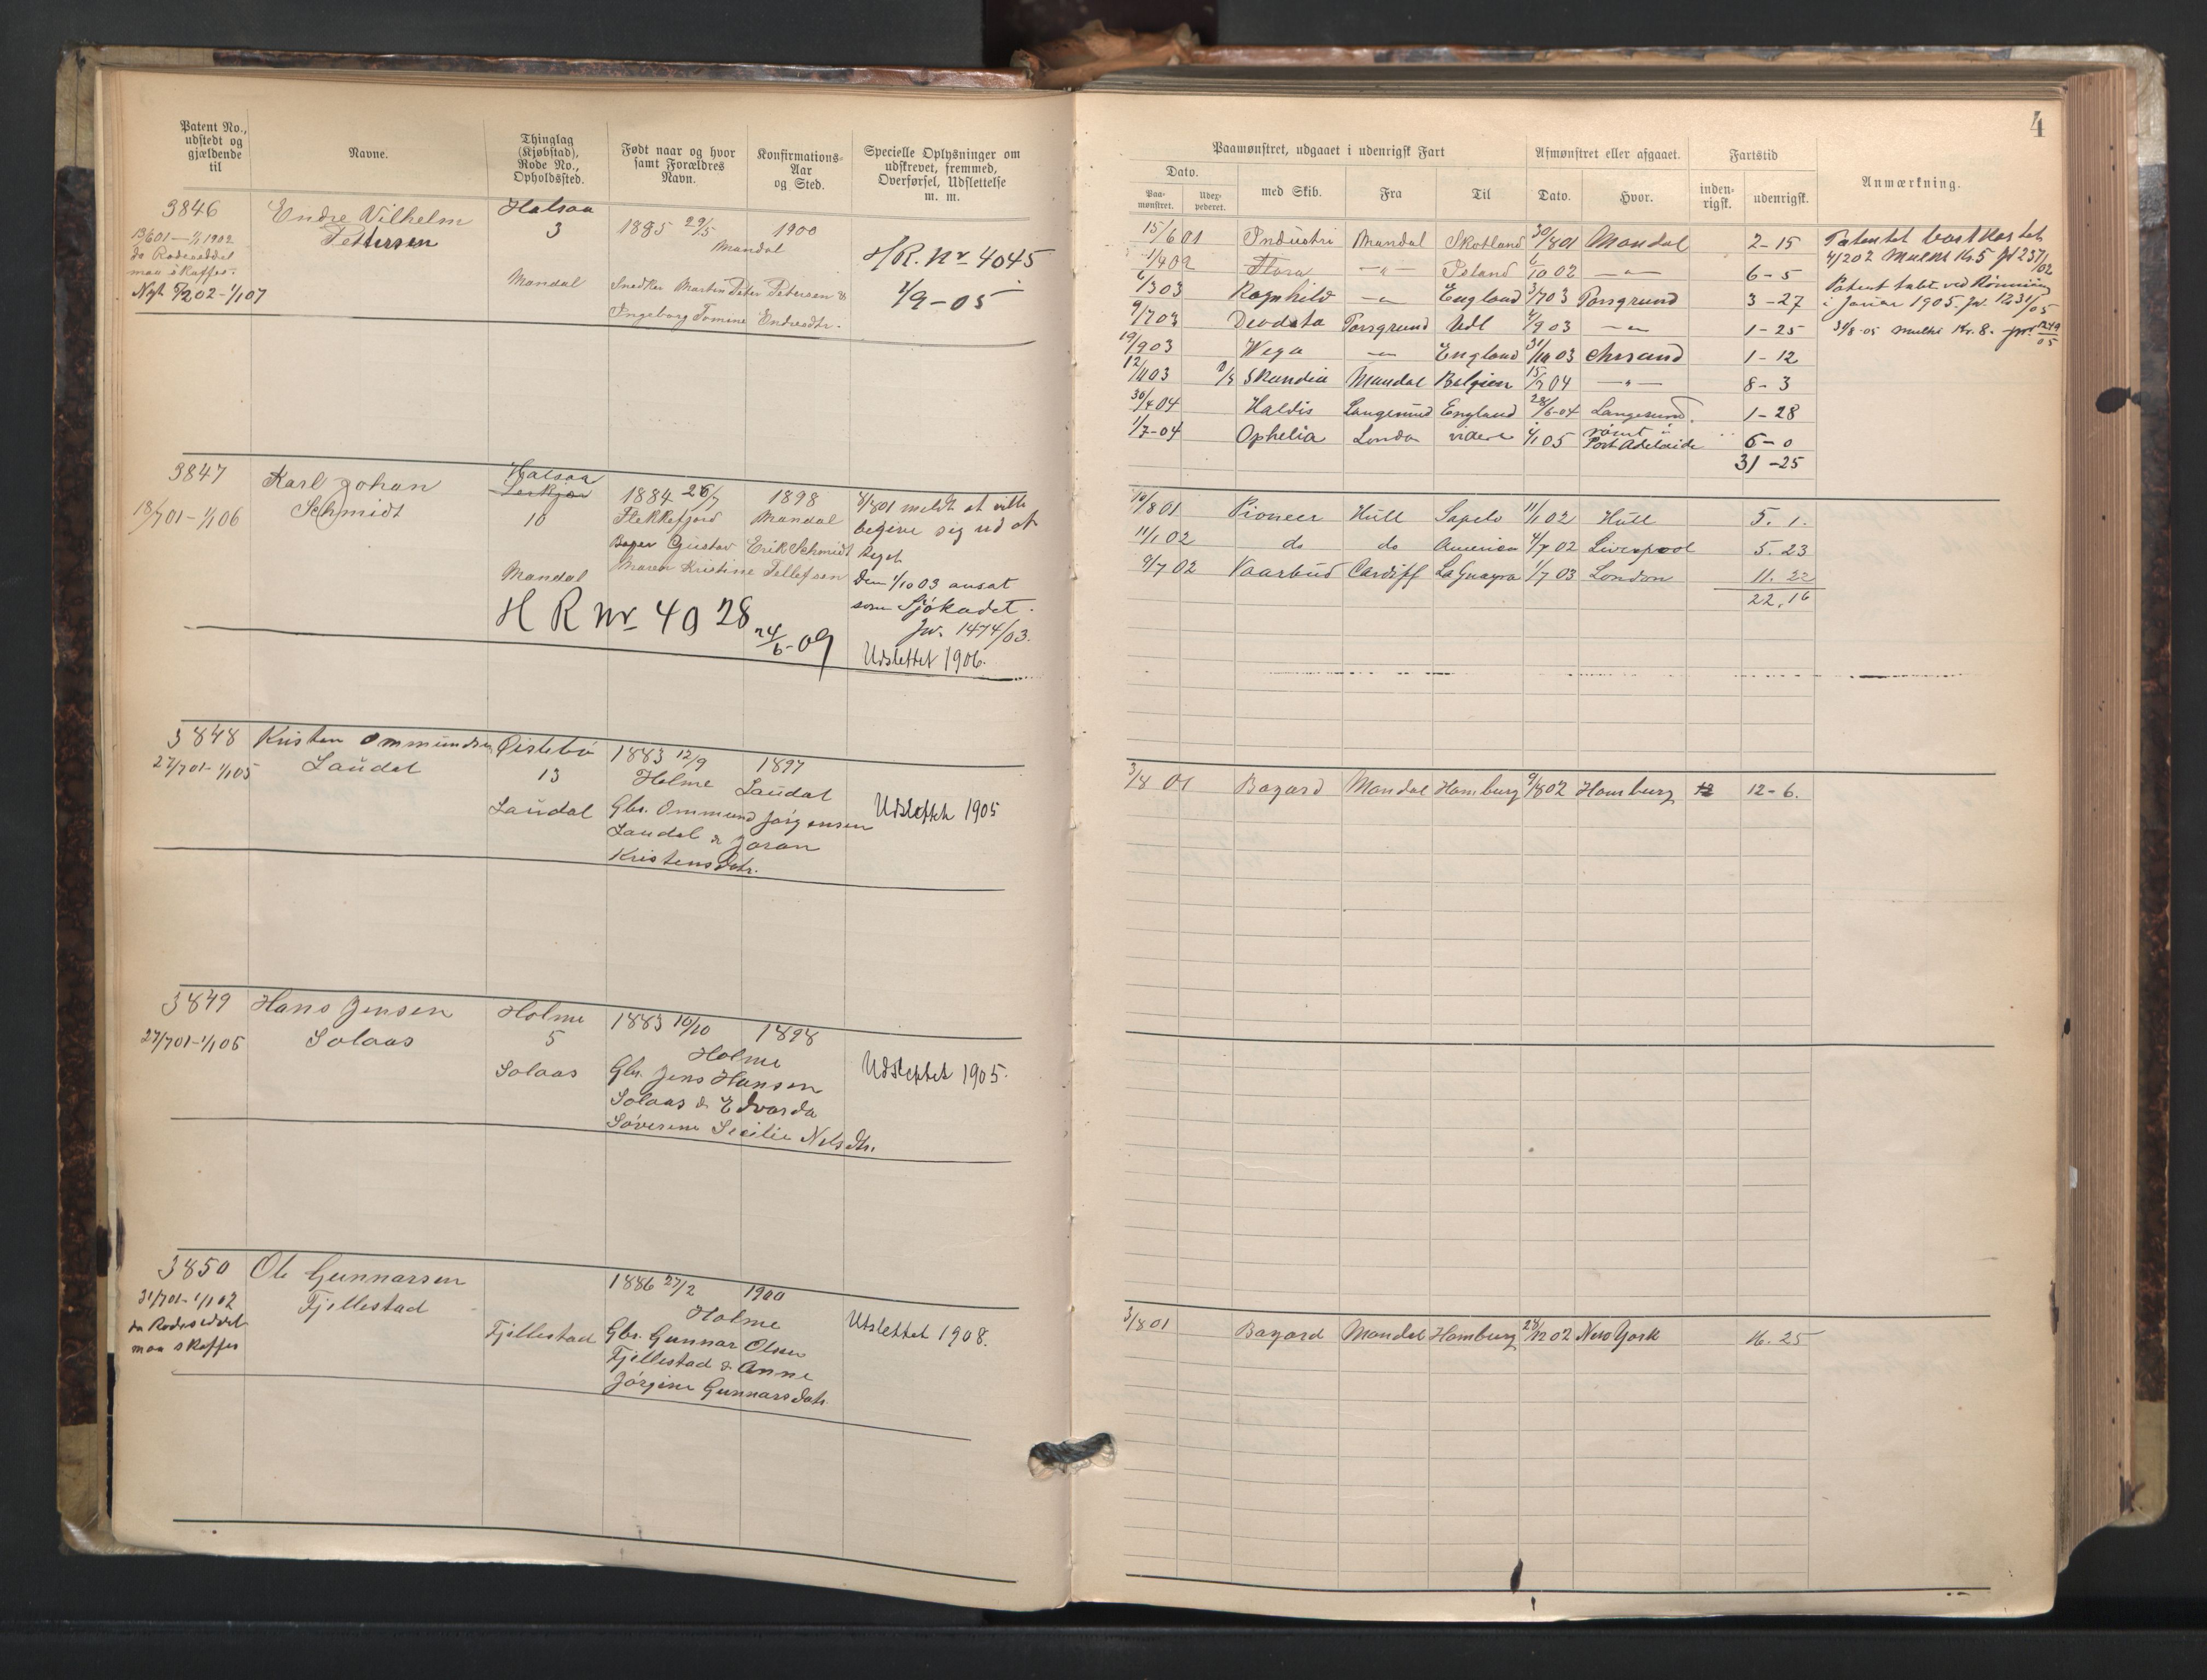 4
Patent No., udstedt og gjældende til
Navne.
Thinglag (Kjøbstad), Rode No., Opholdssted.
Født naar og hvor samt Forældres Navn.
Konfirmations-Aar og Sted.
Specielle Oplysninger om udskrevet, fremmed, Overførsel, Udslettelse m. m.
3846
Endre Vilhelm
Pettersen
Halsaa
3
1885 29/5
1900
Mandal
13/6 01 — 1/1 1902
da Rodeseddel
maa skaffes.
Nyt 7/2 02 - 1/1 07
Mandal
Snedker Martin Peter Petersen &
Ingeborg Tomine Endresdtr.
H.R. Nr 4045
2/9 - 05
3847
Karl Johan
Schmidt
Halsaa
10
1884 26/7
1898
Flekkefjord
Mandal
18/7 01 - 1/1 06
Bager Gustav Erik Schmidt
Maren Kristine Tellefsen
Mandal
8/8 01 meldt at ville
begive sig ud at
Den 1/10 03 ansat
som Sjökadet.
Jw. 1474/03.
Udslettet 1906.
H R Nr 4028 24/6-09
3848
Kristen Ommundsen
Laudal
Öislebö
13
1883 12/9
1897
Holme
Laudal
27/7 01 - 1/1 05
Laudal
Gbr. Ommund Jörgensen
Laudal & Joran
Kristensdatr.
Udslettet 1905
3849
Hans Jensen
Solaas
Holme
5
1883 10/10
1898
Holme
27/7 01 - 1/1 05
Solaas
Gbr. Jens Hansen
Solaas & Edvarda
Söverine Secilie Nelsdtr.
Udslettet 1905.
3850
Ole Gunnarsen
Fjellestad
1886 27/2
1900
Holme
31/7 01 - 1/1 02
da Rodeseddel
maa skaffes
Fjellestad
Gbr. Gunnar Olsen
Fjellestad & Anne
Jörgine Gunnarsdatr.
Utslettet 1908.
Paamønstret, udgaaet i udenrigsk Fart
Afmønstret eller afgaaet.
Fartstid
Anmærkning.
Dato.
Paa-mønstret.
Udex-pederet.
med Skib.
Fra
Til
Dato.
Hvor.
inden-rigsk.
udenrigsk.
15/6 01 Industri Mandal Skotland 30/8 01 Mandal 2 - 15
1/4 02 Flora —"— Island 6/10 02 —"— 6 - 5
6/3 03 Ragnhild —"— England 3/7 03 Porsgrund 3 - 27
9/7 03 Deodata Porsgrund Udl 4/9 03 —"— 1 - 25
19/9 03 Wega —"— England 31/10 03 Chrsand 1 - 12
12/11 03 Skandia Mandal Belgien 15/7 04 —"— 8 - 3
30/4 04 Haldis Langesund England 28/6-04 Langesund. 1 - 28
1/7-04 Ophelia London videre 4/1 05 römt i Port Adelaide 6 - 0
31 - 25
Patentet bortkastet
4/2 02 Mulkt Kr 5 Jr 237/02
Patent tabt ved Römning
i Januar 1905. Jr. 1231/05
31/8-05 mulkt Kr. 8. Jr. 1249/05
10/8 01 Pioneer Hull Sapelo 11/1 02 Hull 5. 1.
11/1 02 do do America 4/7 02 Liverpool 5. 23
9/7 02 Vaarbud Cardiff La Guayra 1/7 03 London 11. 22
22. 16
3/8 01 Bazard Mandal Hamburg 9/8 02 Hamburg 12 - 6.
3/8 01 Bazard Mandal Hamburg 28/12 02 New York 16. 25